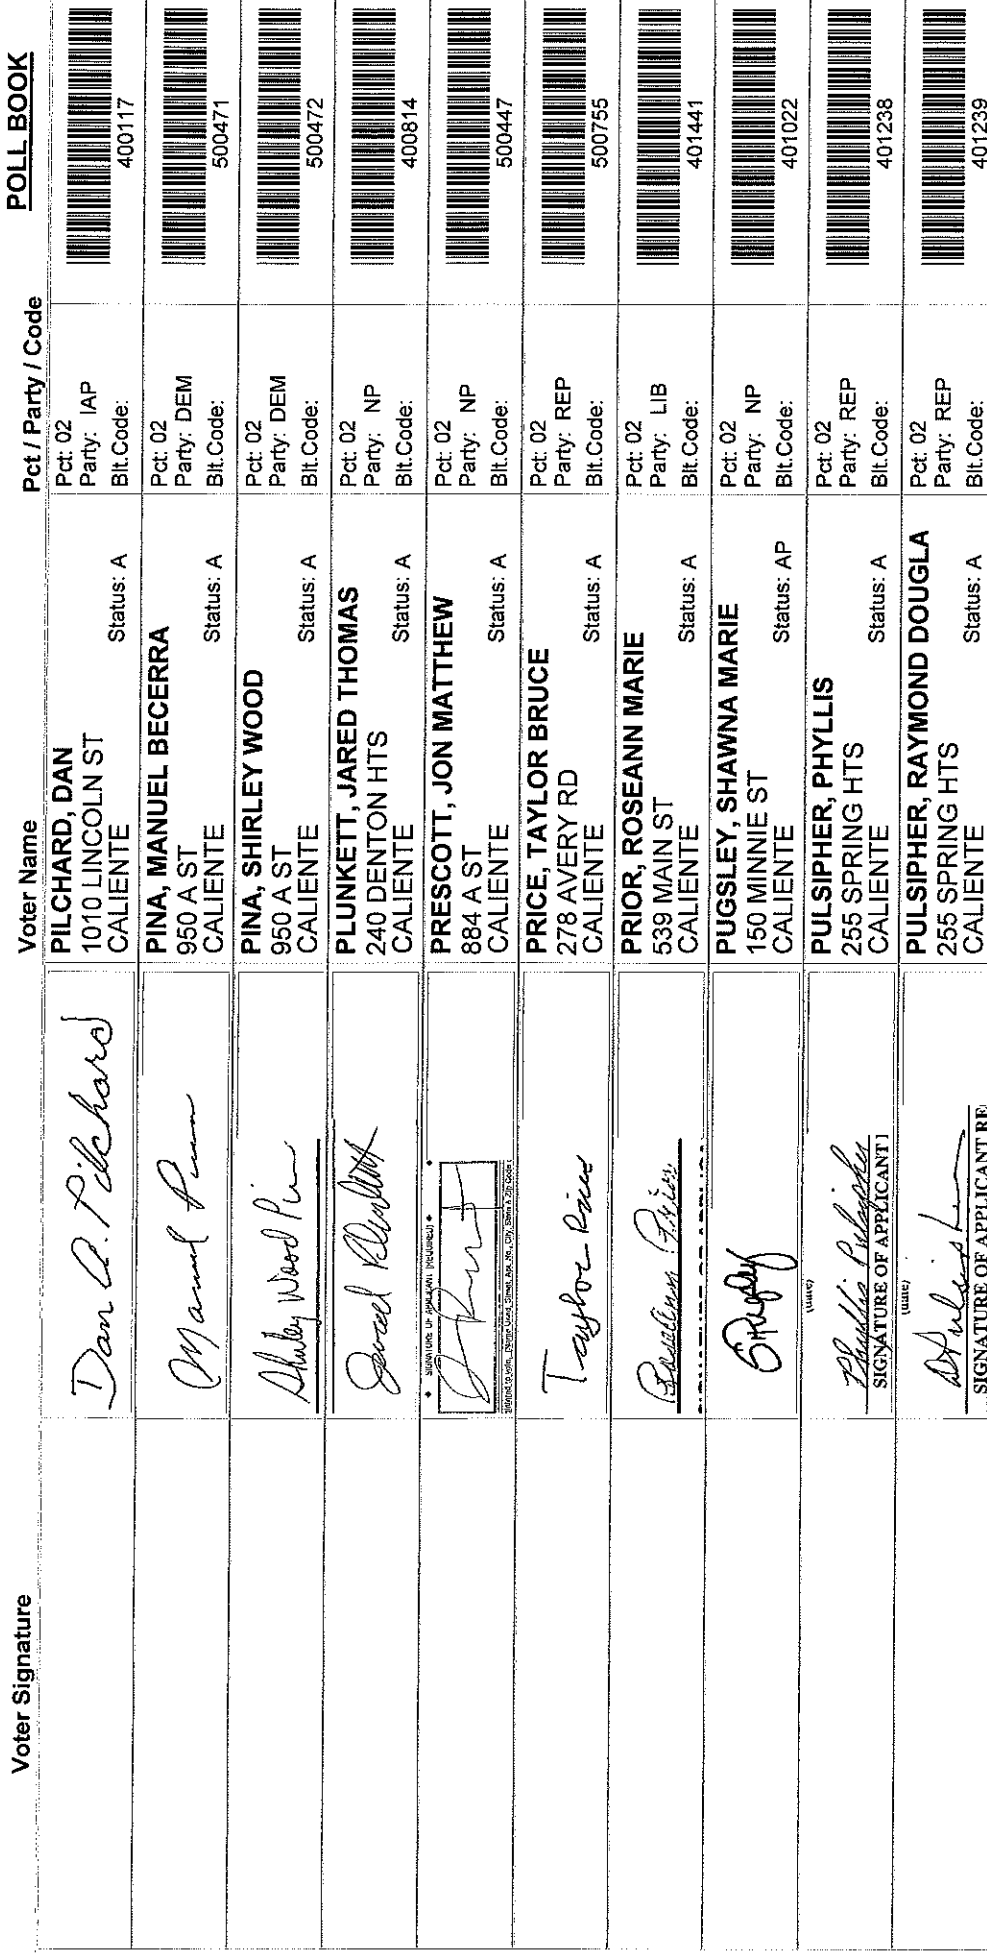 POLL BOOK
Voter Signature
Voter Name
Pct / Party / Code
Dan A. Pilchard
PILCHARD, DAN
1010 LINCOLN ST
CALIENTE
Status: A
Pct: 02
Party: IAP
Blt.Code:
400117
Manuel Pina
PINA, MANUEL BECERRA
950 A ST
CALIENTE
Status: A
Pct: 02
Party: DEM
Blt.Code:
500471
Shirley Wood Pina
PINA, SHIRLEY WOOD
950 A ST
CALIENTE
Status: A
Pct: 02
Party: DEM
Blt.Code:
500472
Jared Plunkett
PLUNKETT, JARED THOMAS
240 DENTON HTS
CALIENTE
Status: A
Pct: 02
Party: NP
Blt.Code:
400814
SIGNATURE OF APPLICANT (REQUIRED)
PRESCOTT, JON MATTHEW
884 A ST
CALIENTE
Status: A
Pct: 02
Party: NP
Blt.Code:
500447
Taylor Price
PRICE, TAYLOR BRUCE
278 AVERY RD
CALIENTE
Status: A
Pct: 02
Party: REP
Blt.Code:
500755
Roseann Prior
PRIOR, ROSEANN MARIE
539 MAIN ST
CALIENTE
Status: A
Pct: 02
Party: LIB
Blt.Code:
401441
SPugsley
PUGSLEY, SHAWNA MARIE
150 MINNIE ST
CALIENTE
Status: AP
Pct: 02
Party: NP
Blt.Code:
401022
Phyllis Pulsipher
SIGNATURE OF APPLICANT
PULSIPHER, PHYLLIS
255 SPRING HTS
CALIENTE
Status: A
Pct: 02
Party: REP
Blt.Code:
401238
(date)
SIGNATURE OF APPLICANT RE
PULSIPHER, RAYMOND DOUGLA
255 SPRING HTS
CALIENTE
Status: A
Pct: 02
Party: REP
Blt.Code:
401239